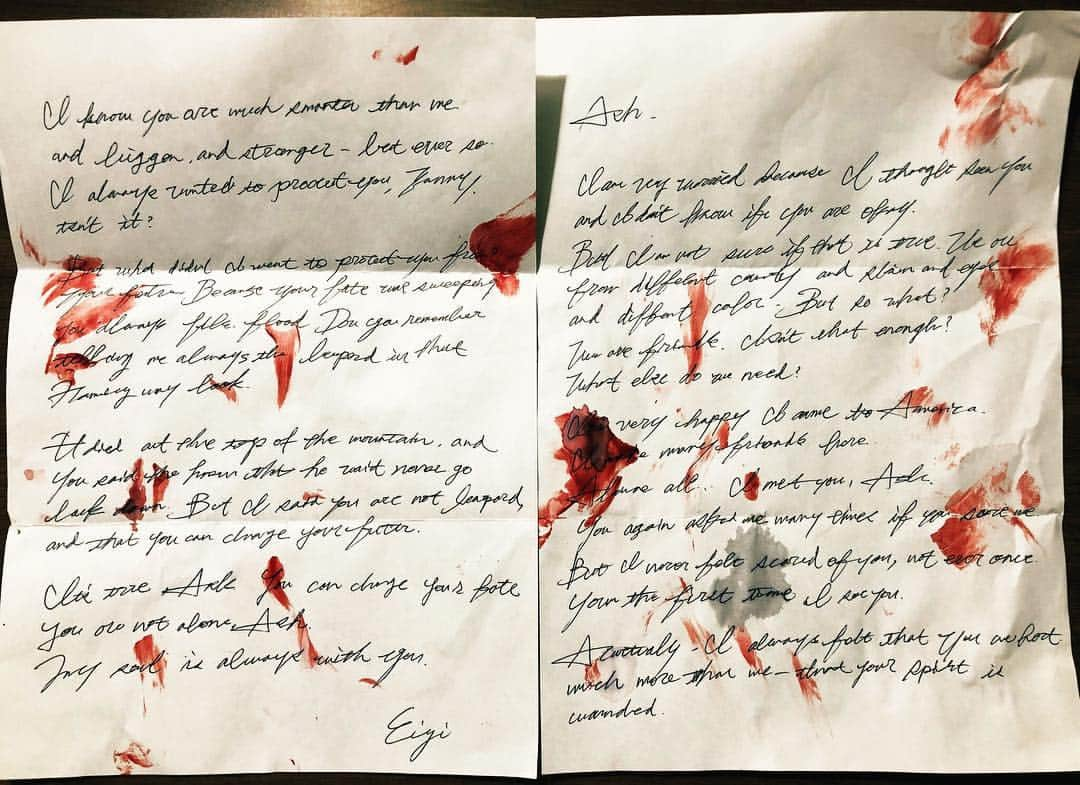 Ash.
I am very worried because I thought seen you
and I don't know if you are okay.
But I'm not sure if that is true. We are
from different country and skin and eyes
and different color - But so what?
We are friends. Isn't that enough?
What else do we need?
very happy I came to America.
many friends here.
all.. I met you, Ash.
You again asked me many times if you scare me
But I never felt scared of you, not ever once.
from the first time I see you.
Acutually - I always felt that you are hurt
much more than me - that your spirit is
wounded.
I know you are much smarter than me
and bigger, and stronger - but ever so.
I always wanted to protect you, Funny,
isn't it?
But what did I want to protect you from?
Your future Because your fate was sweeping
you always like flood Do you remember
telling me always the leopard in that
Hamingway book.
It died at the top of the mountain, and
you said he knew that he not never go
back down. But I said you are not leopard,
and that you can change your future.
It's true Ash You can change your fate
You are not alone, Ash.
My soul is always with you.
Eigi